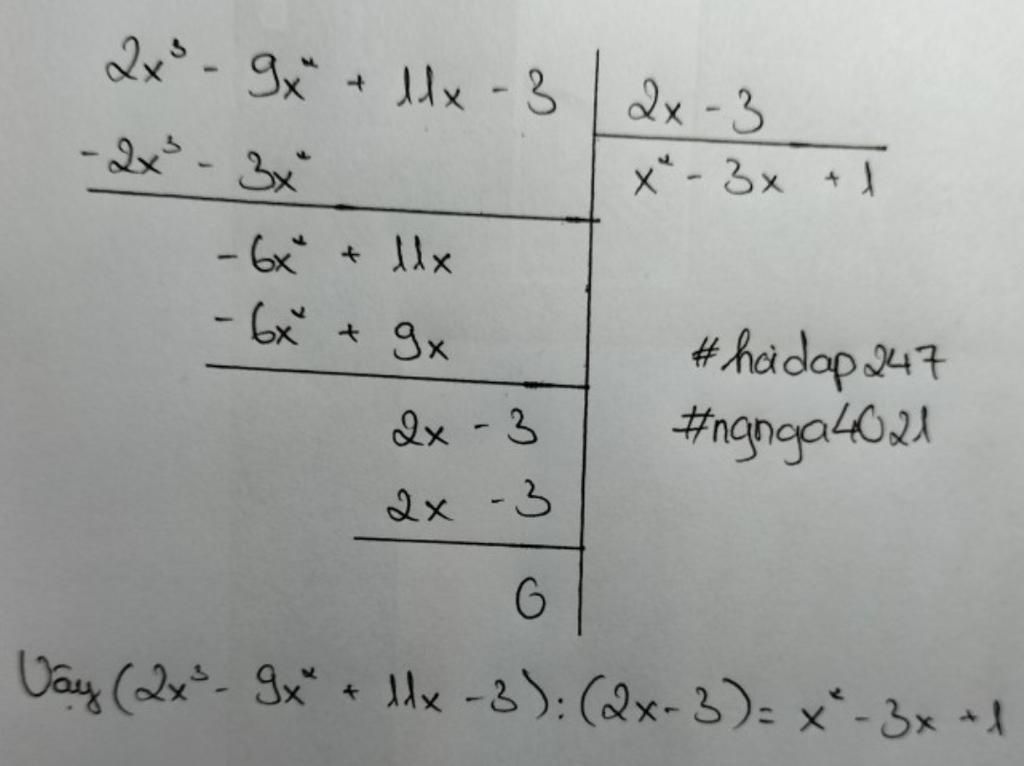 2x³ - 9x² + 11x - 3
2x - 3
-2x³ - 3x²
x² - 3x + 1
-6x² + 11x
-6x² + 9x
#hoidap247
2x - 3
#ngnga4021
2x - 3
0
Vậy (2x³ - 9x² + 11x - 3) : (2x - 3) = x² - 3x + 1